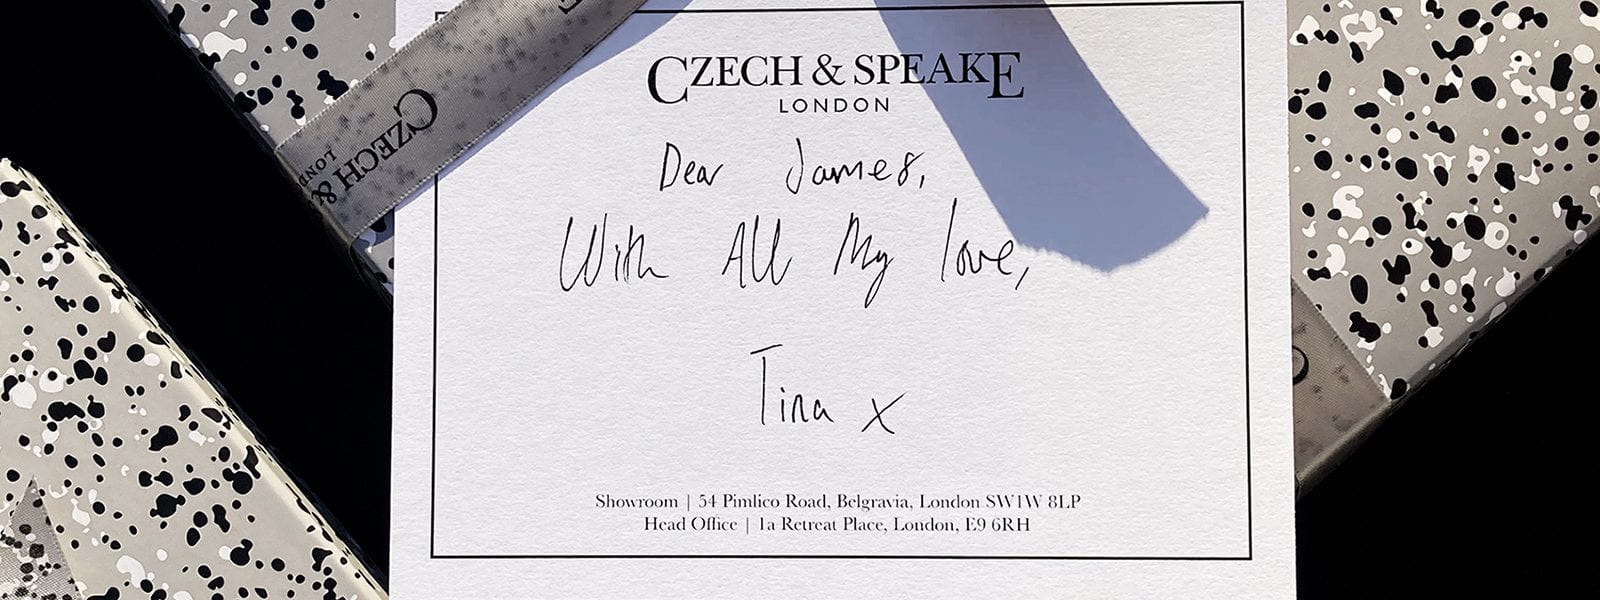 CZECH & SPEAKE
LONDON
Dear James,
With All My love,
Tina x
Showroom | 54 Pimlico Road, Belgravia, London SW1W 8LP
Head Office | 1a Retreat Place, London, E9 6RH
CZECH &
LOND